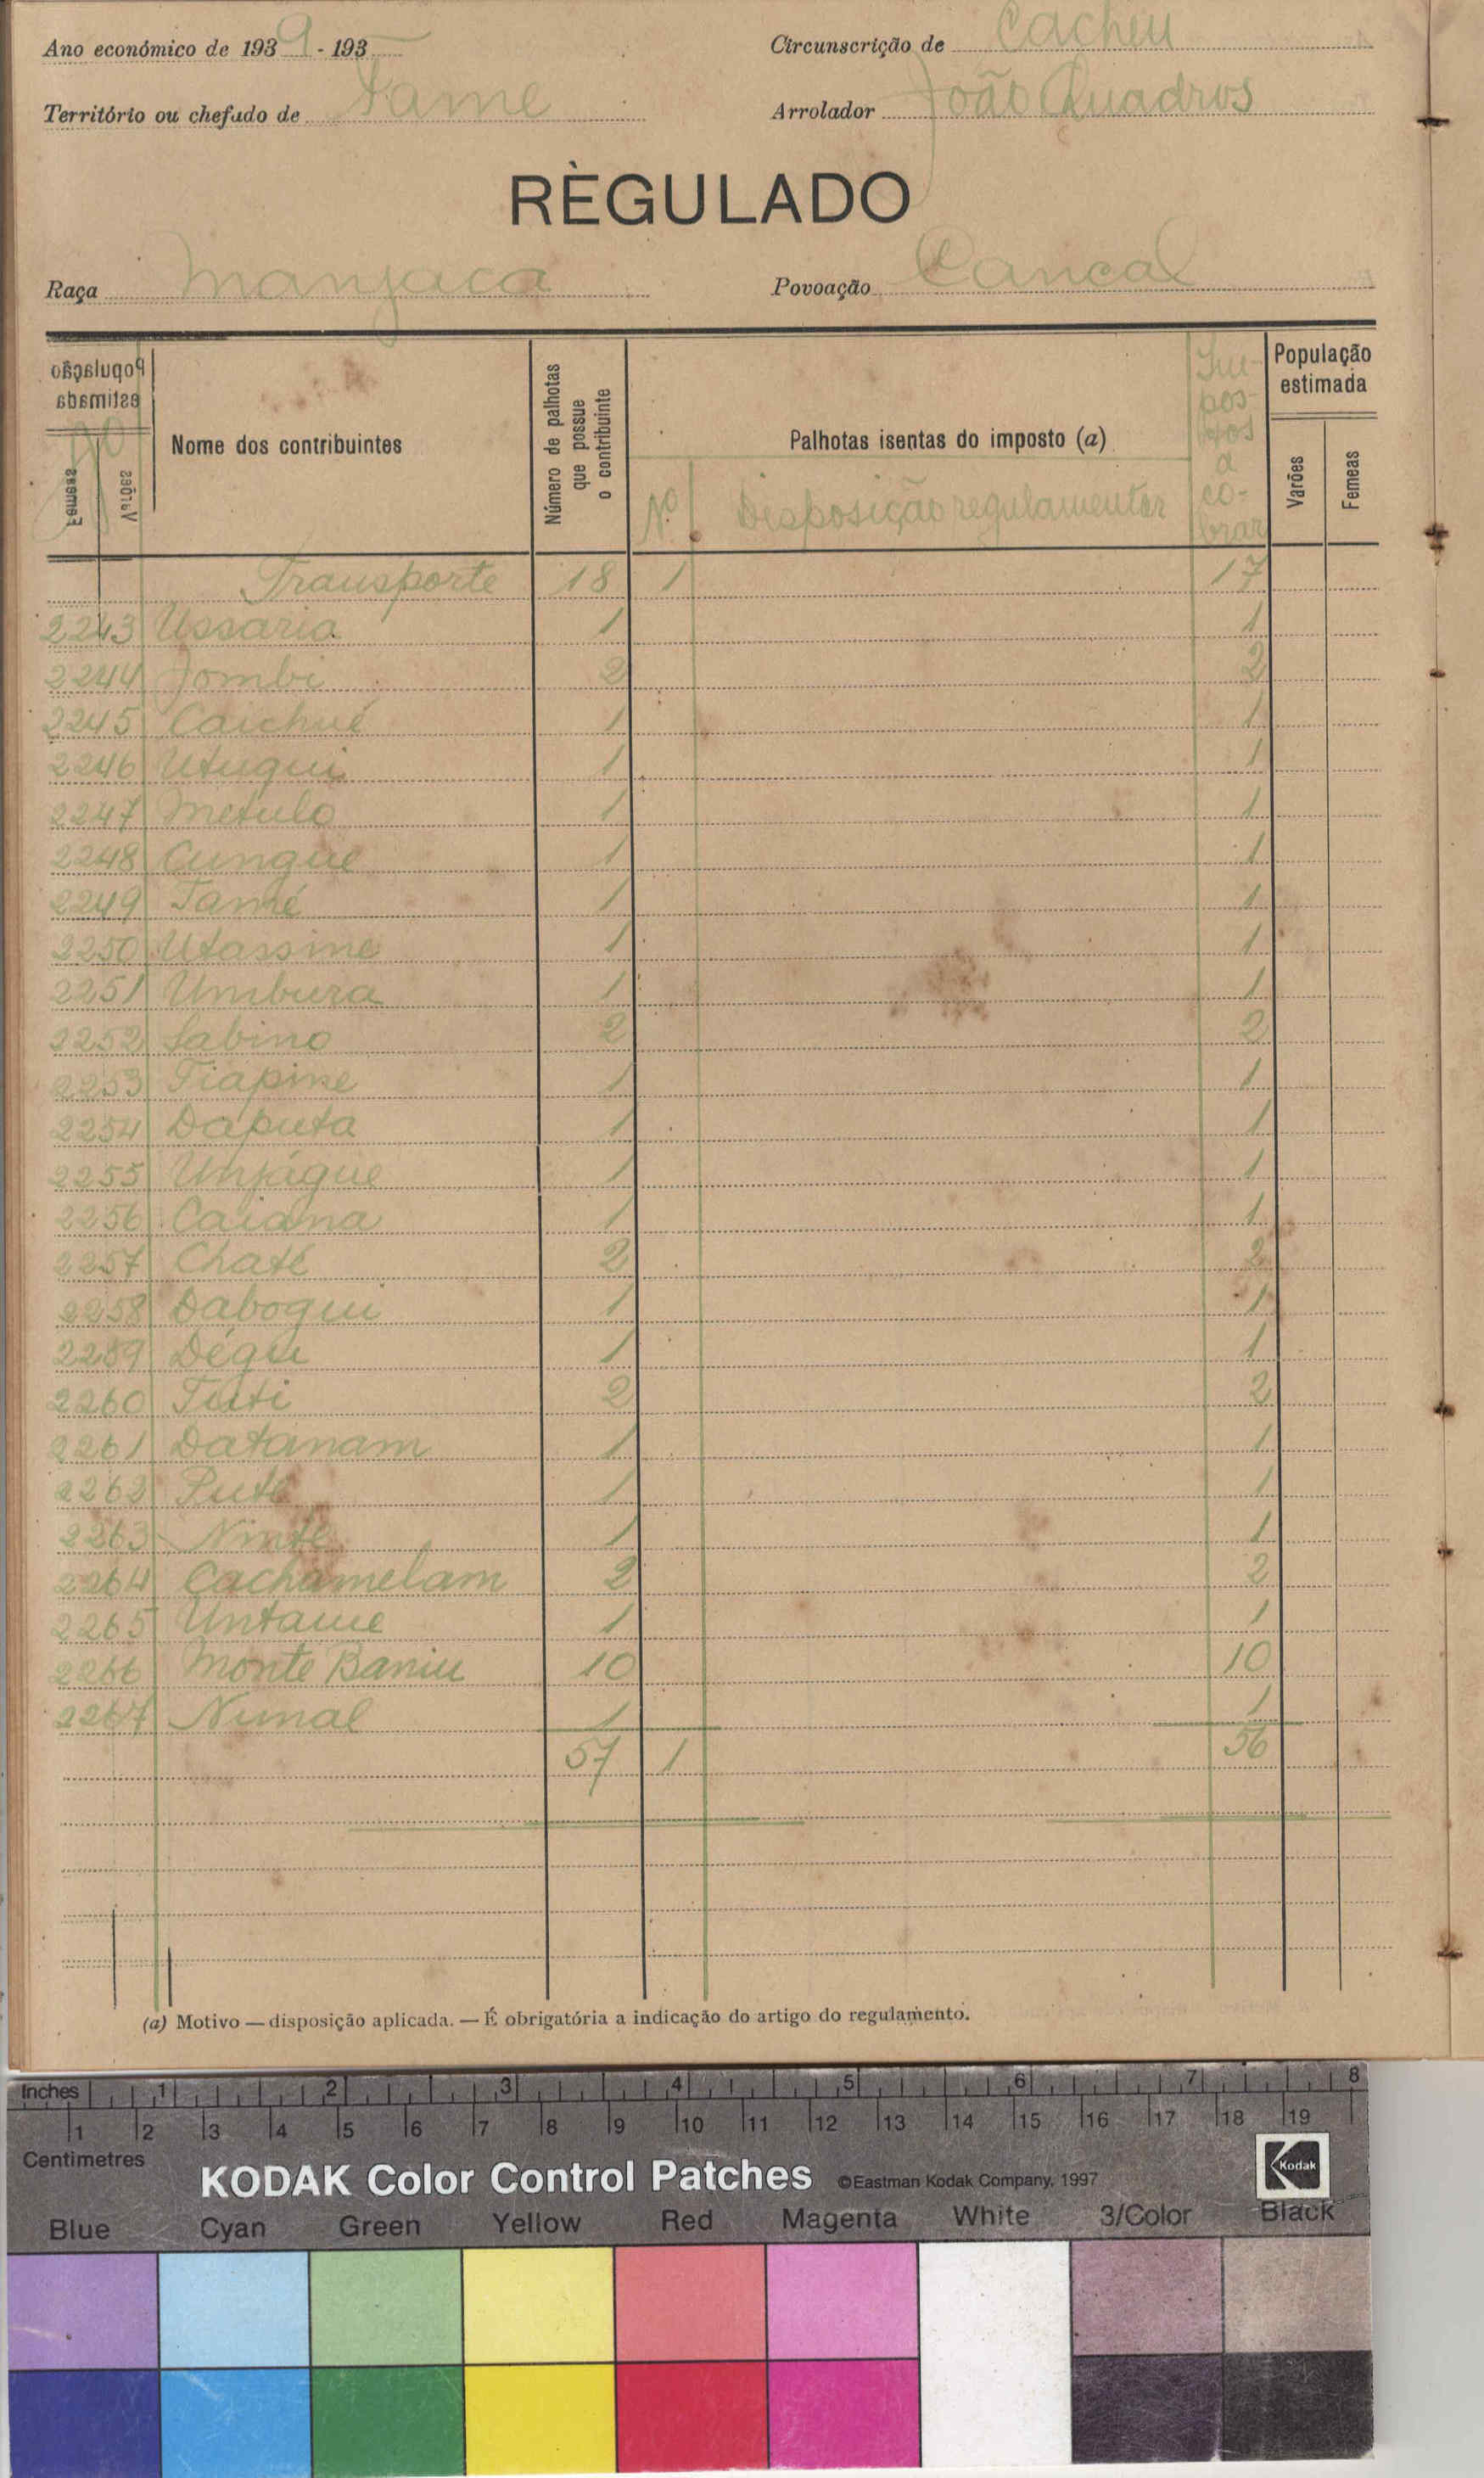 Ano económico de 1939 - 193
Circunscrição de Cacheu
Território ou chefado de Tame
Arrolador João Quadros
RÈGULADO
Raça Manjaca
Povoação Cancal
População estimada
Femeas
Varões
Nº
Nome dos contribuintes
Número de palhotas que possue o contribuinte
Palhotas isentas do imposto (a)
Nº
Disposição regulamentar
Impostos a cobrar
População estimada
Varões
Femeas
Transporte 18 1 17
2243 Ussaria 1 1
2244 Jombi 2 2
2245 Caichué 1 1
2246 Utuqui 1 1
2247 Metulo 1 1
2248 Cungue 1 1
2249 Tamé 1 1
2250 Utassine 1 1
2251 Umbura 1 1
2252 Sabino 2 2
2253 Tiapine 1 1
2254 Daputa 1 1
2255 Unjáque 1 1
2256 Caiana 1 1
2257 Chaté 2 2
2258 Daboqui 1 1
2259 Dégu 1 1
2260 Tuti 2 2
2261 Datanam 1 1
2262 Puté 1 1
2263 Ninté 1 1
2264 Cachamelam 2 2
2265 Untame 1 1
2266 Monte Baniu 10 10
2267 Numal 1 1
57 1 56
(a) Motivo — disposição aplicada. — É obrigatória a indicação do artigo do regulamento.
Inches 1 2 3 4 5 6 7 8
1 2 3 4 5 6 7 8 9 10 11 12 13 14 15 16 17 18 19
Centimetres
KODAK Color Control Patches ©Eastman Kodak Company, 1997 Kodak
Blue Cyan Green Yellow Red Magenta White 3/Color Black